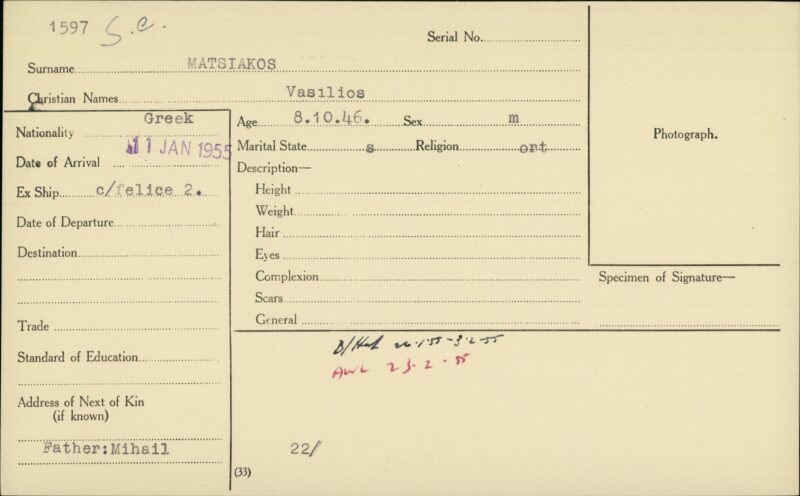 1597 S.C.
Serial No.
Surname MATSIAKOS
Christian Names Vasilios
Nationality Greek
Date of Arrival 11 JAN 1955
Ex Ship c/felice 2.
Date of Departure
Destination
Trade
Standard of Education
Address of Next of Kin
(if known)
Father:Mihail
Age 8.10.46. Sex m
Marital State s Religion ort
Description—
Height
Weight
Hair
Eyes
Complexion
Scars
General
Photograph.
Specimen of Signature—
26.1.55-3.2.55
AWL 23.2.55
22/
(33)